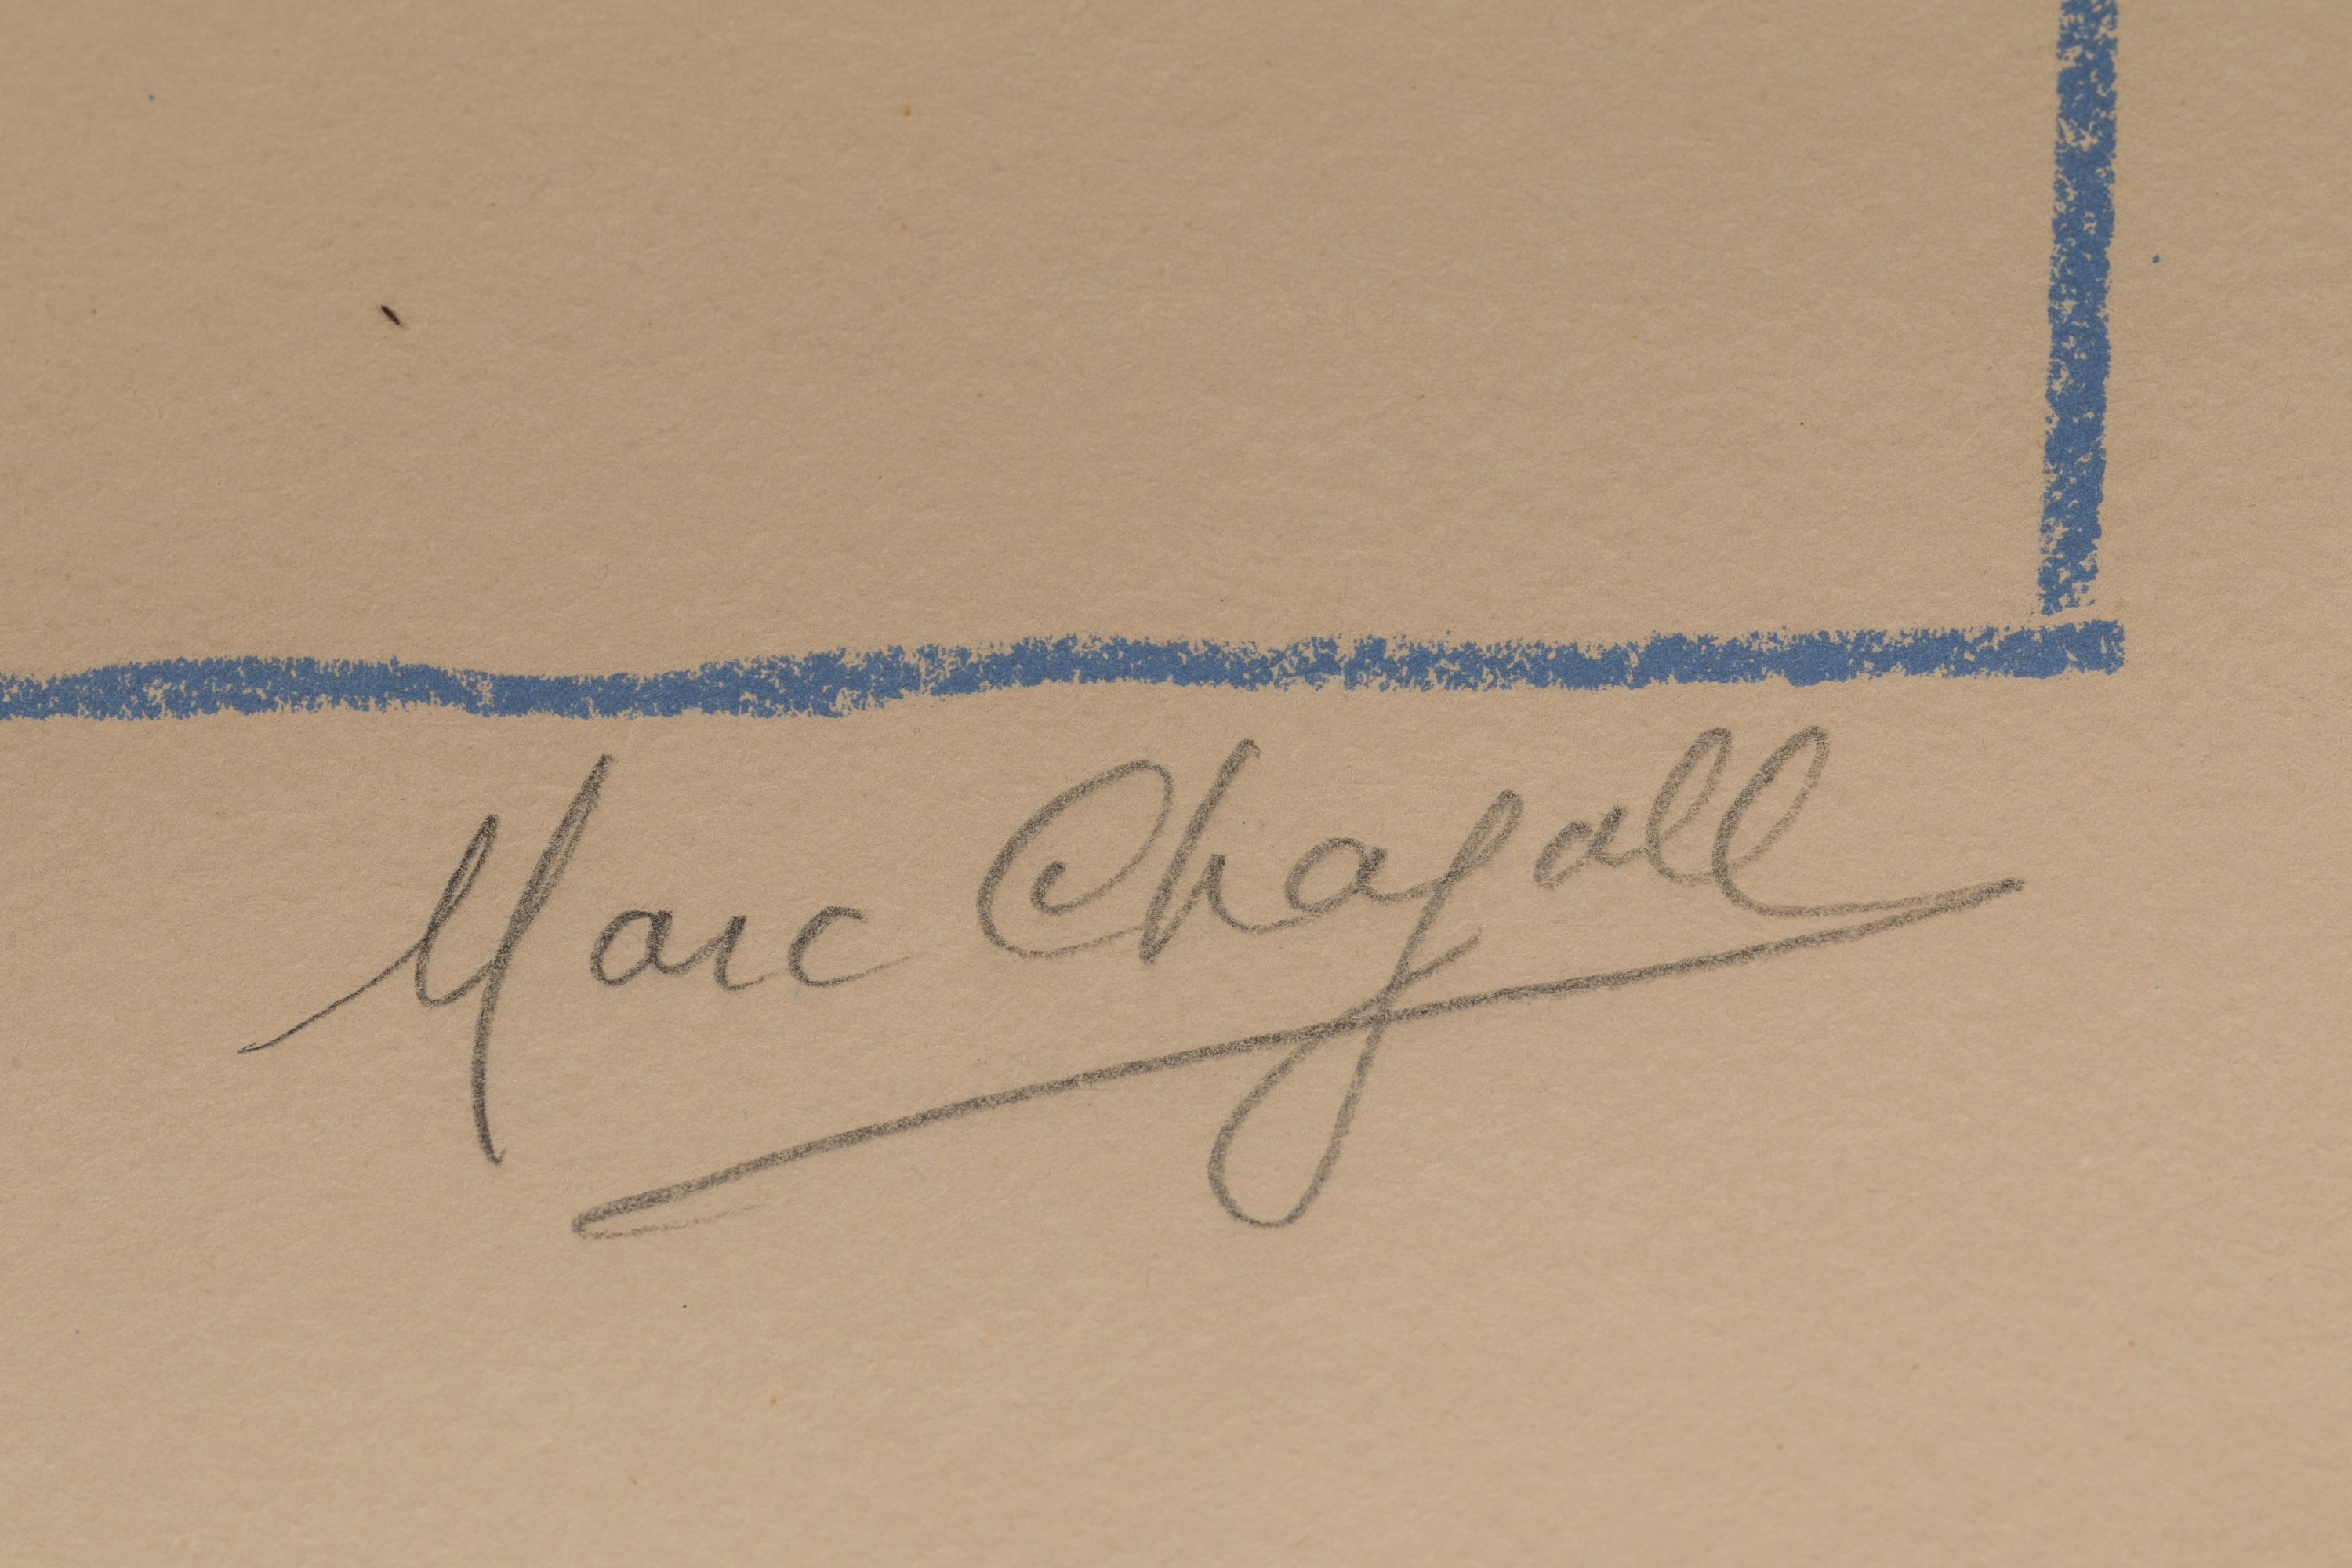 Marc Chagall